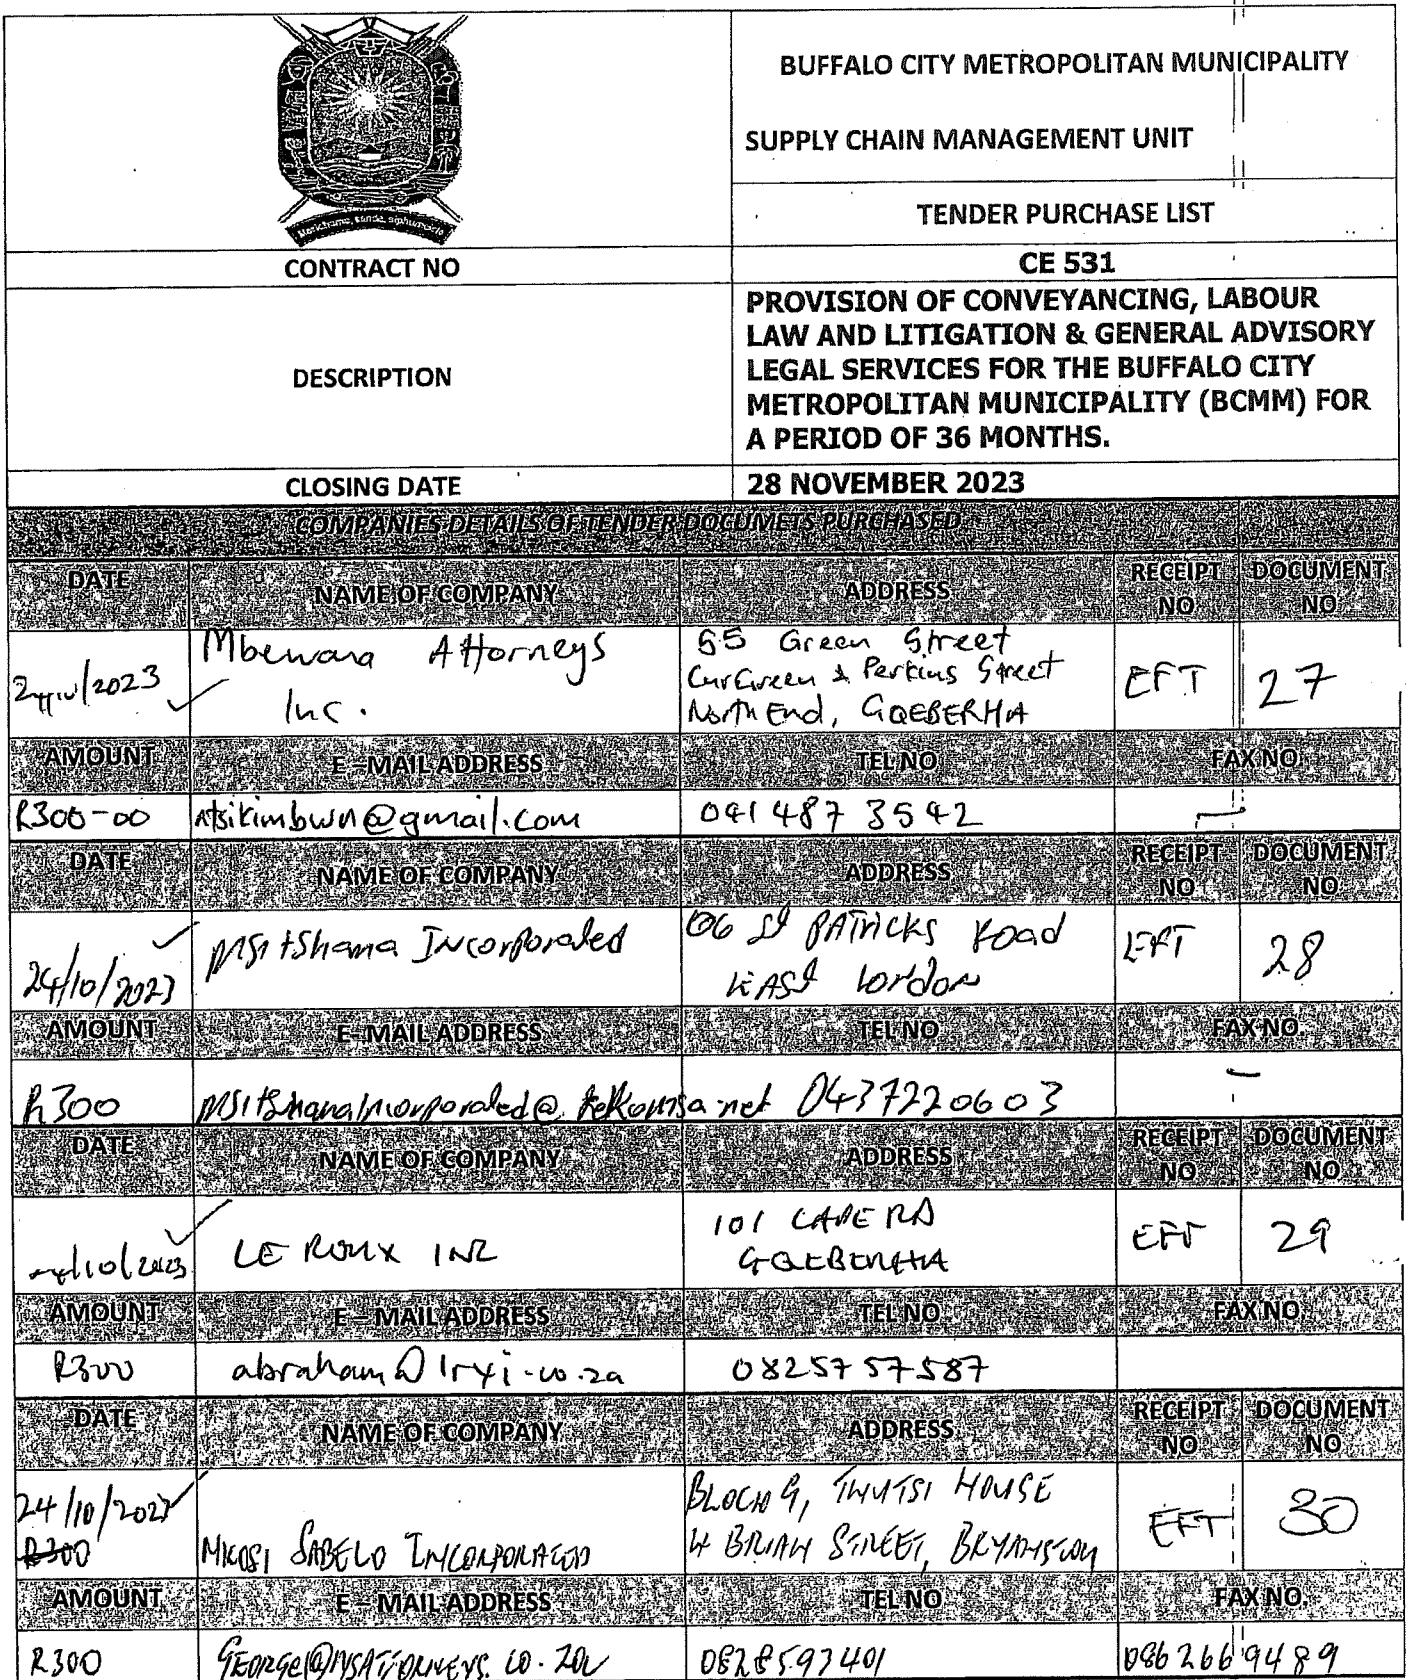 BUFFALO CITY METROPOLITAN MUNICIPALITY
SUPPLY CHAIN MANAGEMENT UNIT
TENDER PURCHASE LIST
CONTRACT NO
CE 531
DESCRIPTION
PROVISION OF CONVEYANCING, LABOUR
LAW AND LITIGATION & GENERAL ADVISORY
LEGAL SERVICES FOR THE BUFFALO CITY
METROPOLITAN MUNICIPALITY (BCMM) FOR
A PERIOD OF 36 MONTHS.
CLOSING DATE
28 NOVEMBER 2023
COMPANIES DETAILS OF TENDER DOCUMETS PURCHASED
DATE NAME OF COMPANY ADDRESS RECEIPT NO DOCUMENT NO
Attorneys
Inc.
55 Green Street
Green & Perkins Street
North End, GQEBERHA
EFT 27
AMOUNT E – MAIL ADDRESS TEL NO FAX NO.
R300-00 041 487 3542
DATE NAME OF COMPANY ADDRESS RECEIPT NO DOCUMENT NO
24/10/2023 Incorporated
St PATRICKS Road
EAST London
EFT 28
AMOUNT E – MAIL ADDRESS TEL NO FAX NO.
R300 0437220603
DATE NAME OF COMPANY ADDRESS RECEIPT NO DOCUMENT NO
LE ROUX INC
101 CAPE RD
GQEBERHA
EFT 29
AMOUNT E – MAIL ADDRESS TEL NO FAX NO.
R300 0825757587
DATE NAME OF COMPANY ADDRESS RECEIPT NO DOCUMENT NO
24/10/2023
R300
SABELO INCORPORATED
HOUSE
4 BRIAN STREET, BRYANSTON
EFT 30
AMOUNT E – MAIL ADDRESS TEL NO FAX NO.
R300 086 266 9489